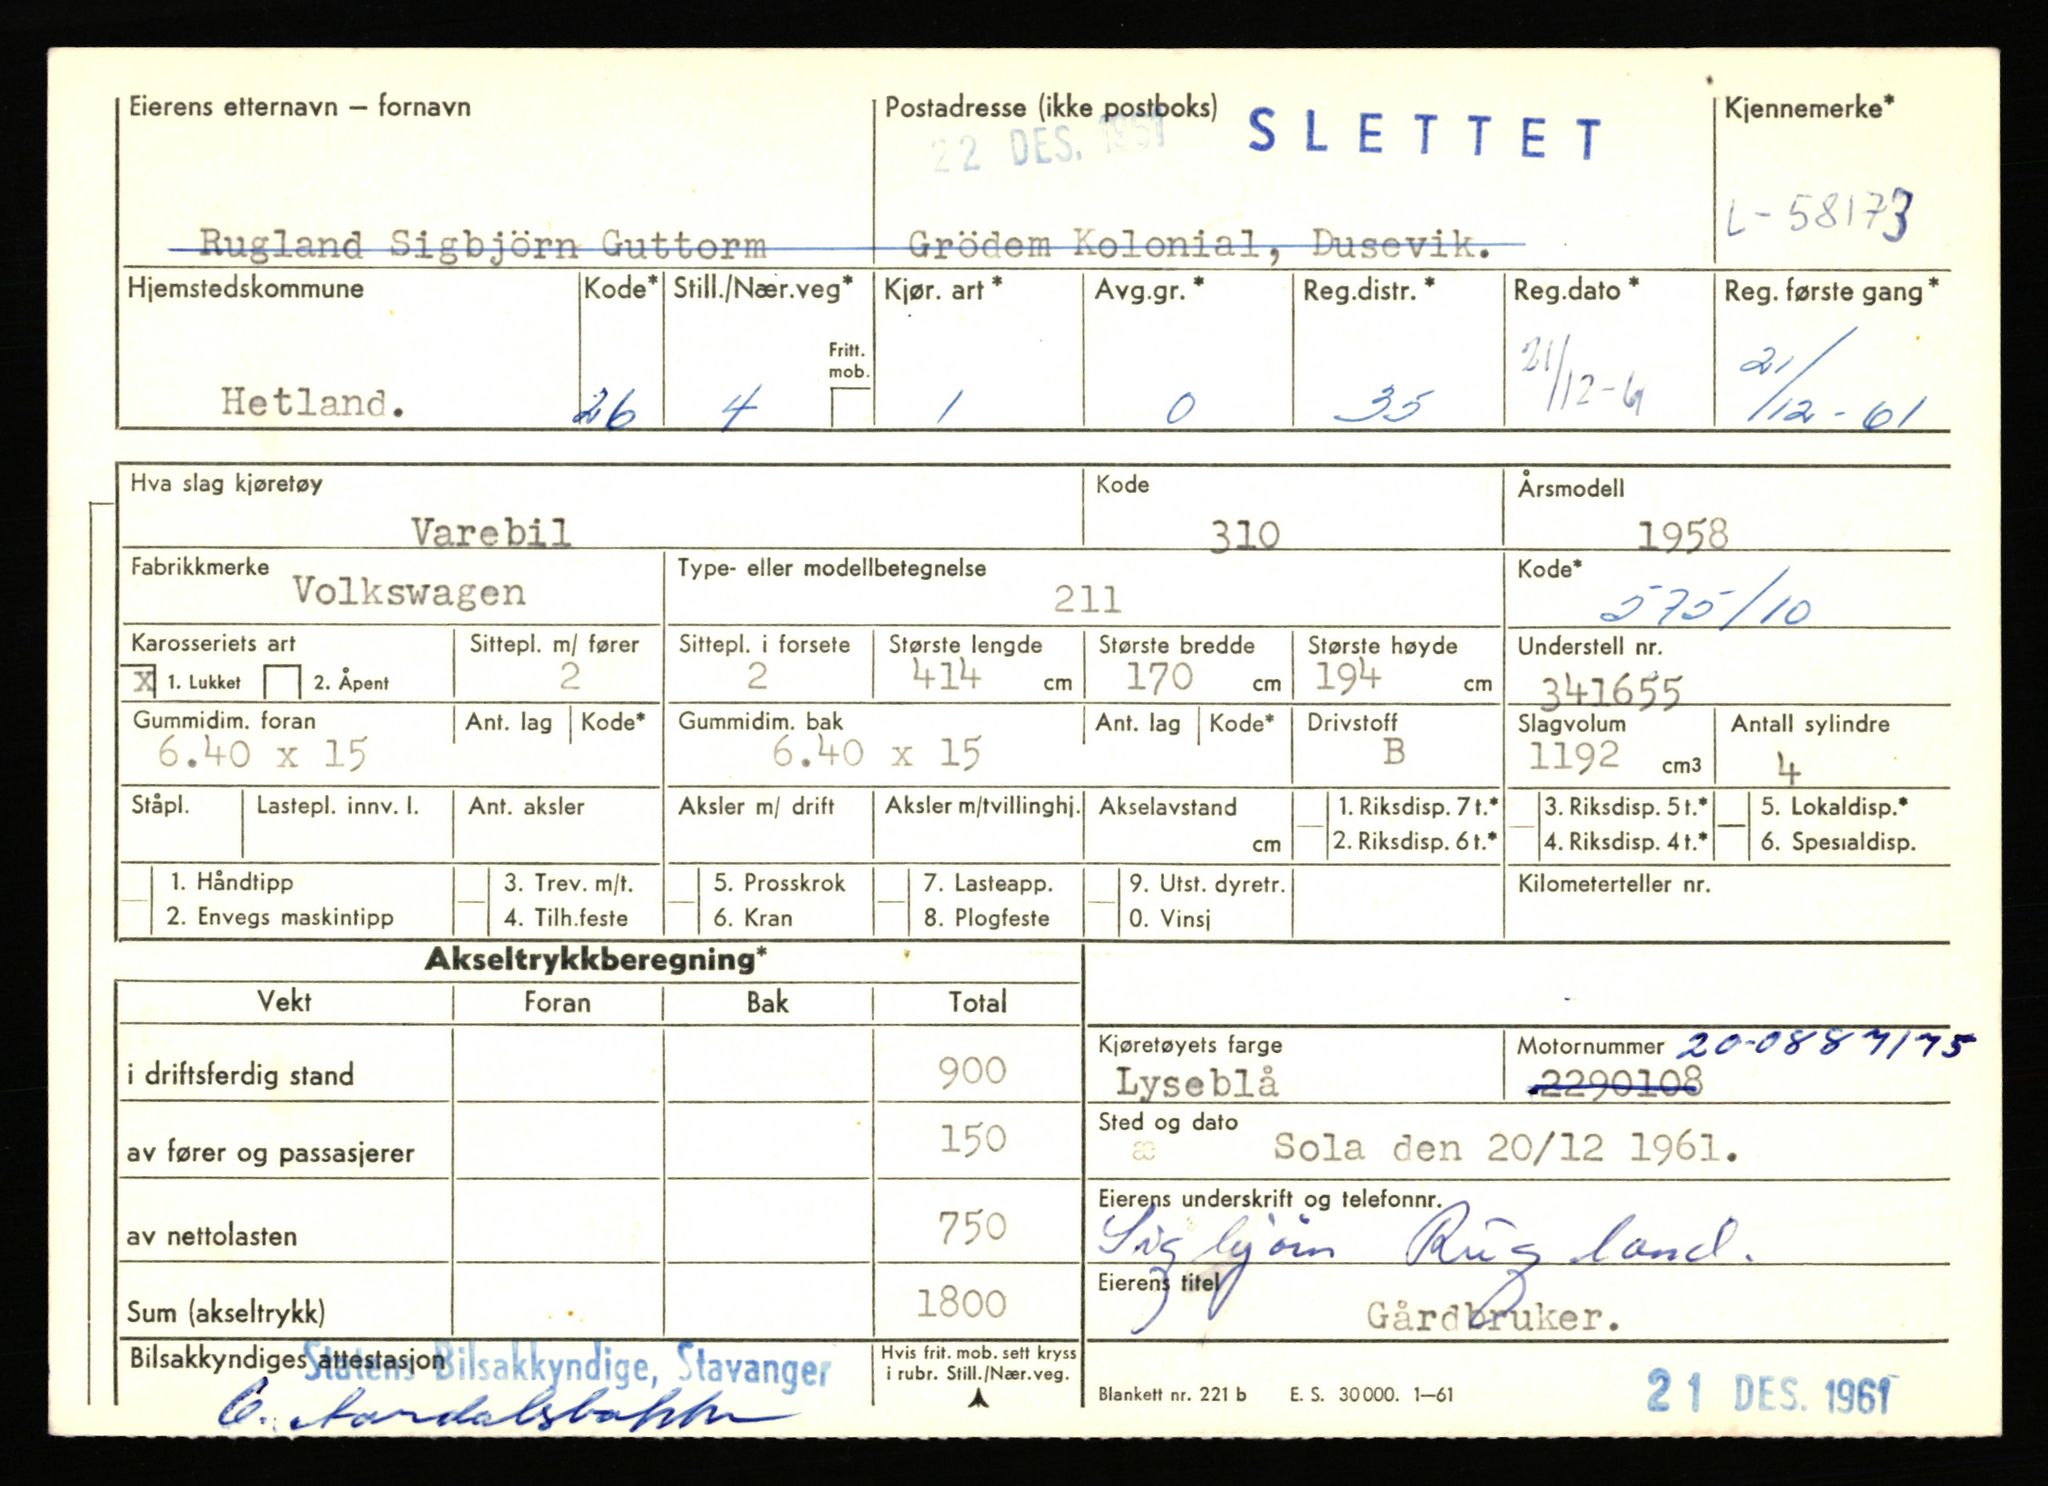 Eierens etternavn – fornavn
Postadresse (ikke postboks)
SLETTET
Kjennemerke*
22 DES. 1961
L-58173
Rugland Sigbjörn Guttorm
Grödem Kolonial, Dusevik.
Hjemstedskommune
Kode*
Still./Nær.veg*
Kjør. art*
Avg.gr.*
Reg.distr.*
Reg.dato*
Reg. første gang*
Fritt. mob.
Hetland.
26
4
1
0
35
21/12-61
21/12-61
Hva slag kjøretøy
Kode
Årsmodell
Varebil
310
1958
Fabrikkmerke
Type- eller modellbetegnelse
Kode*
Volkswagen
211
575/10
Karosseriets art
Sittepl. m/ fører
Sittepl. i forsete
Største lengde
Største bredde
Største høyde
Understell nr.
x 1. Lukket
2. Åpent
2
2
414 cm
170 cm
194 cm
341655
Gummidim. foran
Ant. lag
Kode*
Gummidim. bak
Ant. lag
Kode*
Drivstoff
Slagvolum
Antall sylindre
6.40 x 15
6.40 x 15
B
1192 cm3
4
Ståpl.
Lastepl. innv. l.
Ant. aksler
Aksler m/ drift
Aksler m/tvillinghj.
Akselavstand
cm
1. Riksdisp. 7 t.*
3. Riksdisp. 5 t.*
5. Lokaldisp.*
2. Riksdisp. 6 t.*
4. Riksdisp. 4 t.*
6. Spesialdisp.
1. Håndtipp
3. Trev. m/t.
5. Prosskrok
7. Lasteapp.
9. Utst. dyretr.
Kilometerteller nr.
2. Envegs maskintipp
4. Tilh.feste
6. Kran
8. Plogfeste
0. Vinsj
Akseltrykkberegning*
Vekt
Foran
Bak
Total
i driftsferdig stand
900
Kjøretøyets farge
Motornummer
20-0887175
Lyseblå
2290108
av fører og passasjerer
150
Sted og dato
æ
Sola den 20/12 1961.
av nettolasten
750
Eierens underskrift og telefonnr.
Sigbjörn Rugland.
Sum (akseltrykk)
1800
Eierens titel
Gårdbruker.
Bilsakkyndiges attestasjon
Statens Bilsakkyndige, Stavanger
Hvis frit. mob. sett kryss
i rubr. Still./Nær.veg.
Blankett nr. 221 b
E. S. 30 000. 1–61
21 DES. 1961